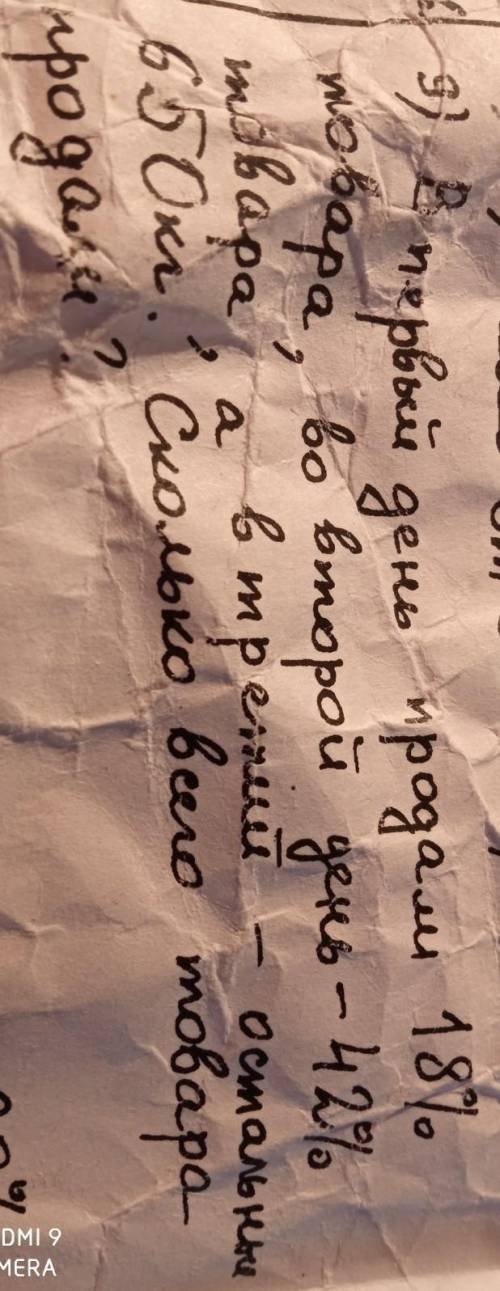 9) В первый день продали 18%
товара, во второй день - 42%
товара, а в третий - остальные
650кг. Сколько всего товара
продали?